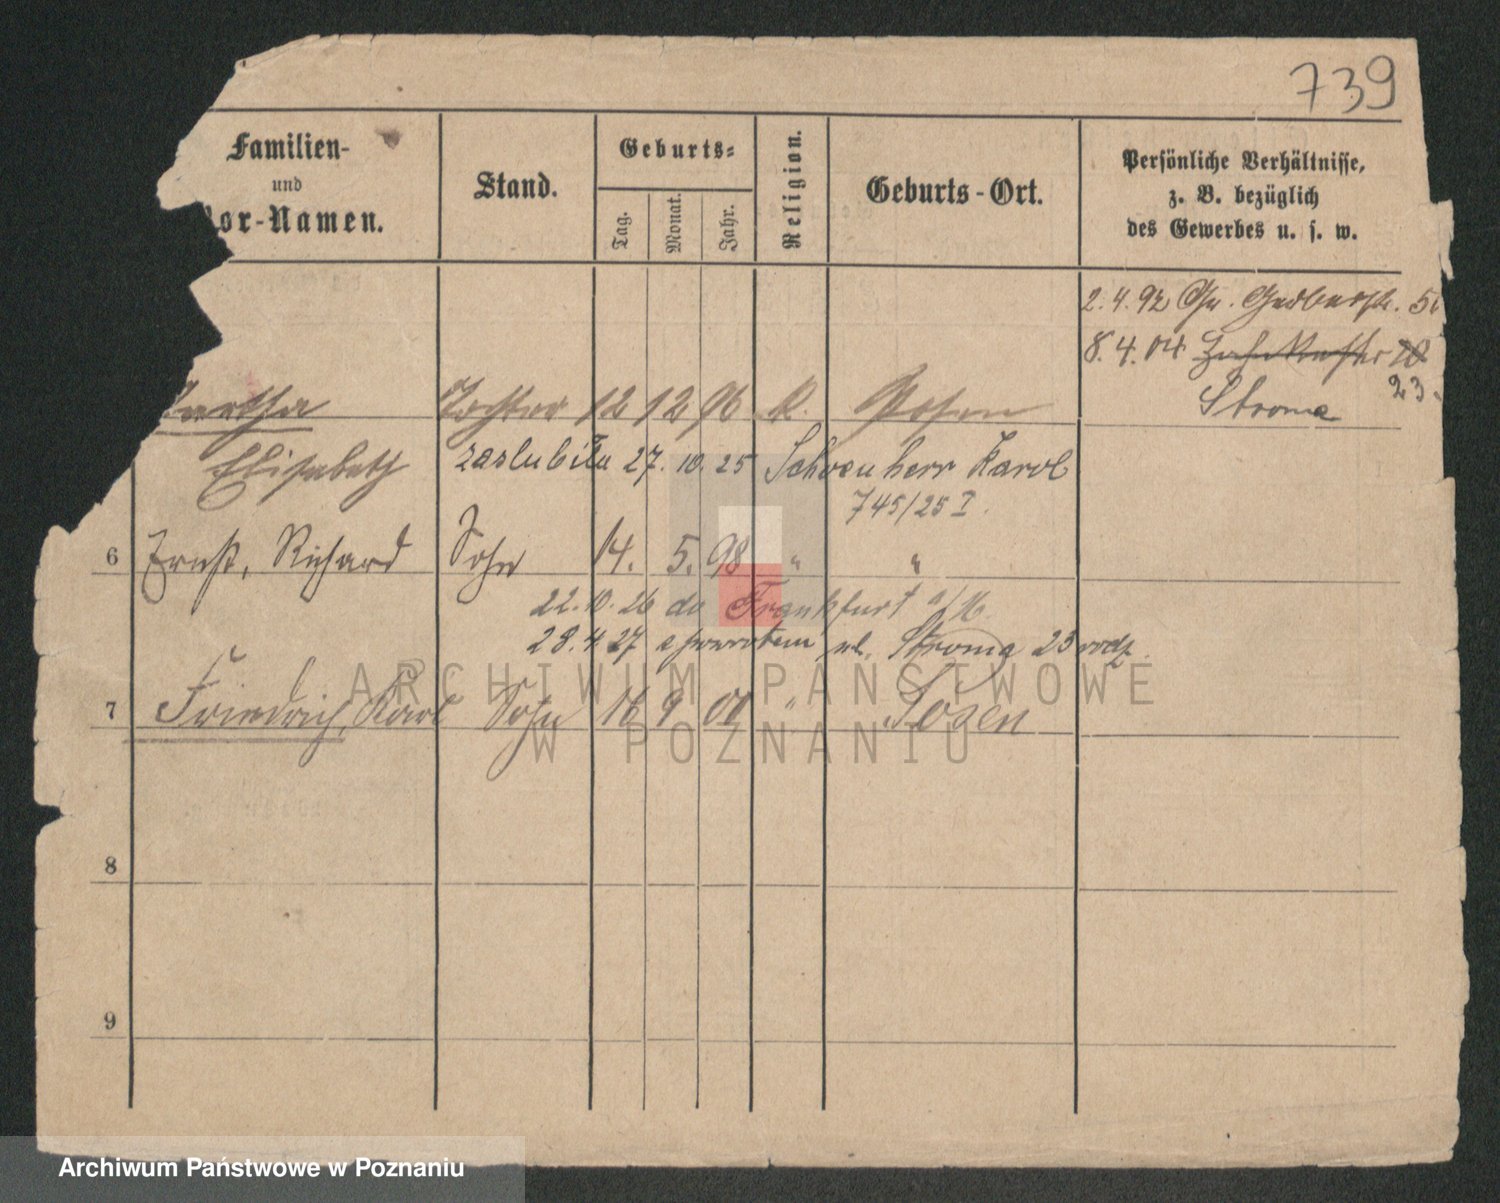 739
Familien-
und
Vor-Namen.
Stand.
Geburts-
Tag.
Monat.
Jahr.
Religion.
Geburts-Ort.
Persönliche Verhältnisse,
z. B. bezüglich
des Gewerbes u. s. w.
2.4.92 Gr. Gerberstr.
8.4.04
23.
Stroma
Tochter 12 12 96 k. Posen
Elisabeth zaślubiła 27.10.25 Schoenherr Karol
745/25 I.
6 Ernst, Richard Sohn 14. 5. 98 " "
22.10.26 do Frankfurt a/M.
28.4.27 z powrotem ul. Stroma 23 rodz.
7 Friedrich, Karl Sohn 16 9 00 " Posen
8
9
ARCHIWUM PAŃSTWOWE
W POZNANIU
Archiwum Państwowe w Poznaniu